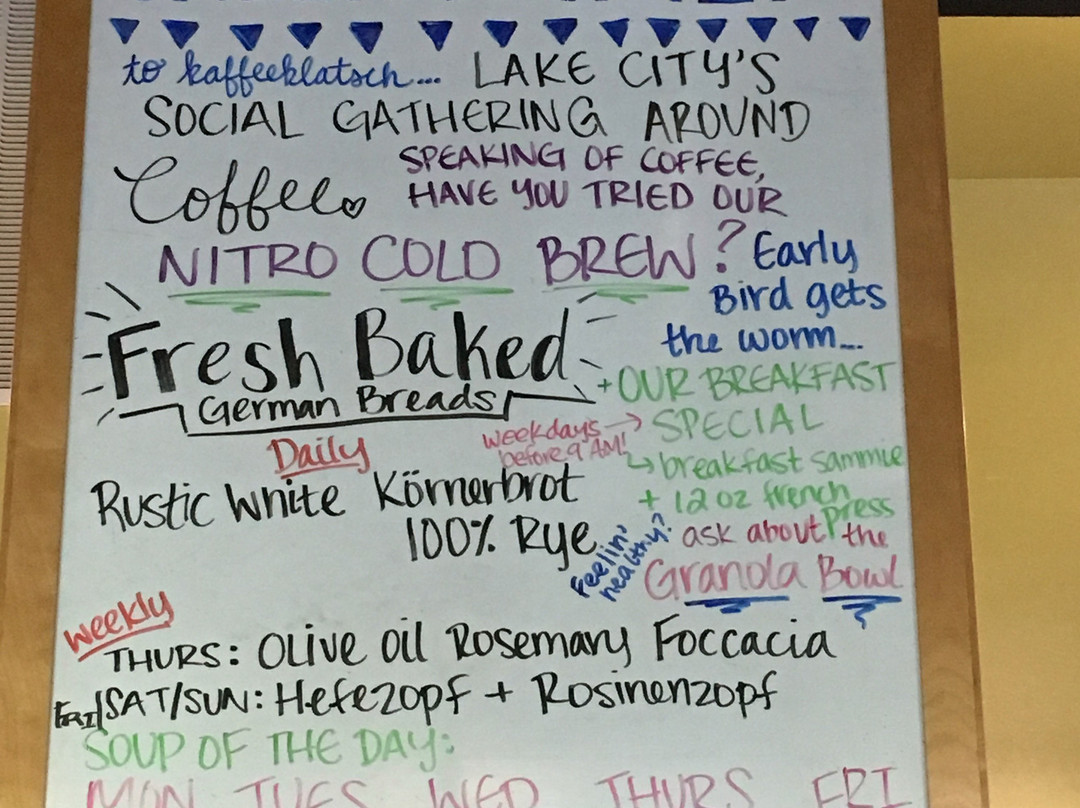 to kaffeeklatsch... LAKE CITY'S
SOCIAL GATHERING AROUND
Coffee
SPEAKING OF COFFEE,
HAVE YOU TRIED OUR
NITRO COLD BREW?
Early
Bird gets
the worm...
Fresh Baked
German Breads
+OUR BREAKFAST
SPECIAL
weekdays
before 9 AM!
breakfast sammie
+ 12 oz french
Press
Daily
Rustic White Körnerbrot
100% Rye
Feelin'
healthy?
ask about the
Granola Bowl
Weekly
THURS: Olive oil Rosemary Foccacia
FRI/SAT/SUN: Hefezopf + Rosinenzopf
SOUP OF THE DAY:
MON TUES WED THURS FRI